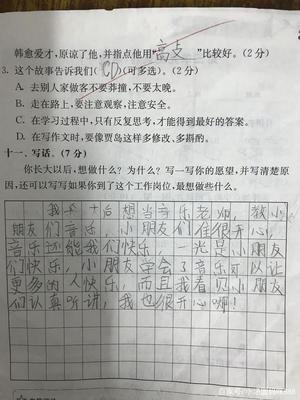 韩愈爱才，原谅了他，并指点他用“高支”比较好。(2分)
3. 这个故事告诉我们(CD)(可多选)。(2分)
A. 去别人家做客不要莽撞，不要太晚。
B. 走在路上，要注意观察，注意安全。
C. 在学习过程中，只有反复思考，才能得到最好的答案。
D. 在写作文时，要像贾岛这样多修改、多斟酌。
十一、写话。(7分)
你长大以后，想做什么？为什么？写一写你的愿望，并写清楚原
因，还可以写写如果你到了这个工作岗位，最想做些什么。
我长大后想当音乐老师，教小
朋友们音乐，小朋友们在很开心，
音乐还能我们快乐，一光是小朋友
们快乐，小朋友学会了音乐可以让
更多的人快乐，而且我看见小朋友
们认真听讲，我也很开心啊！